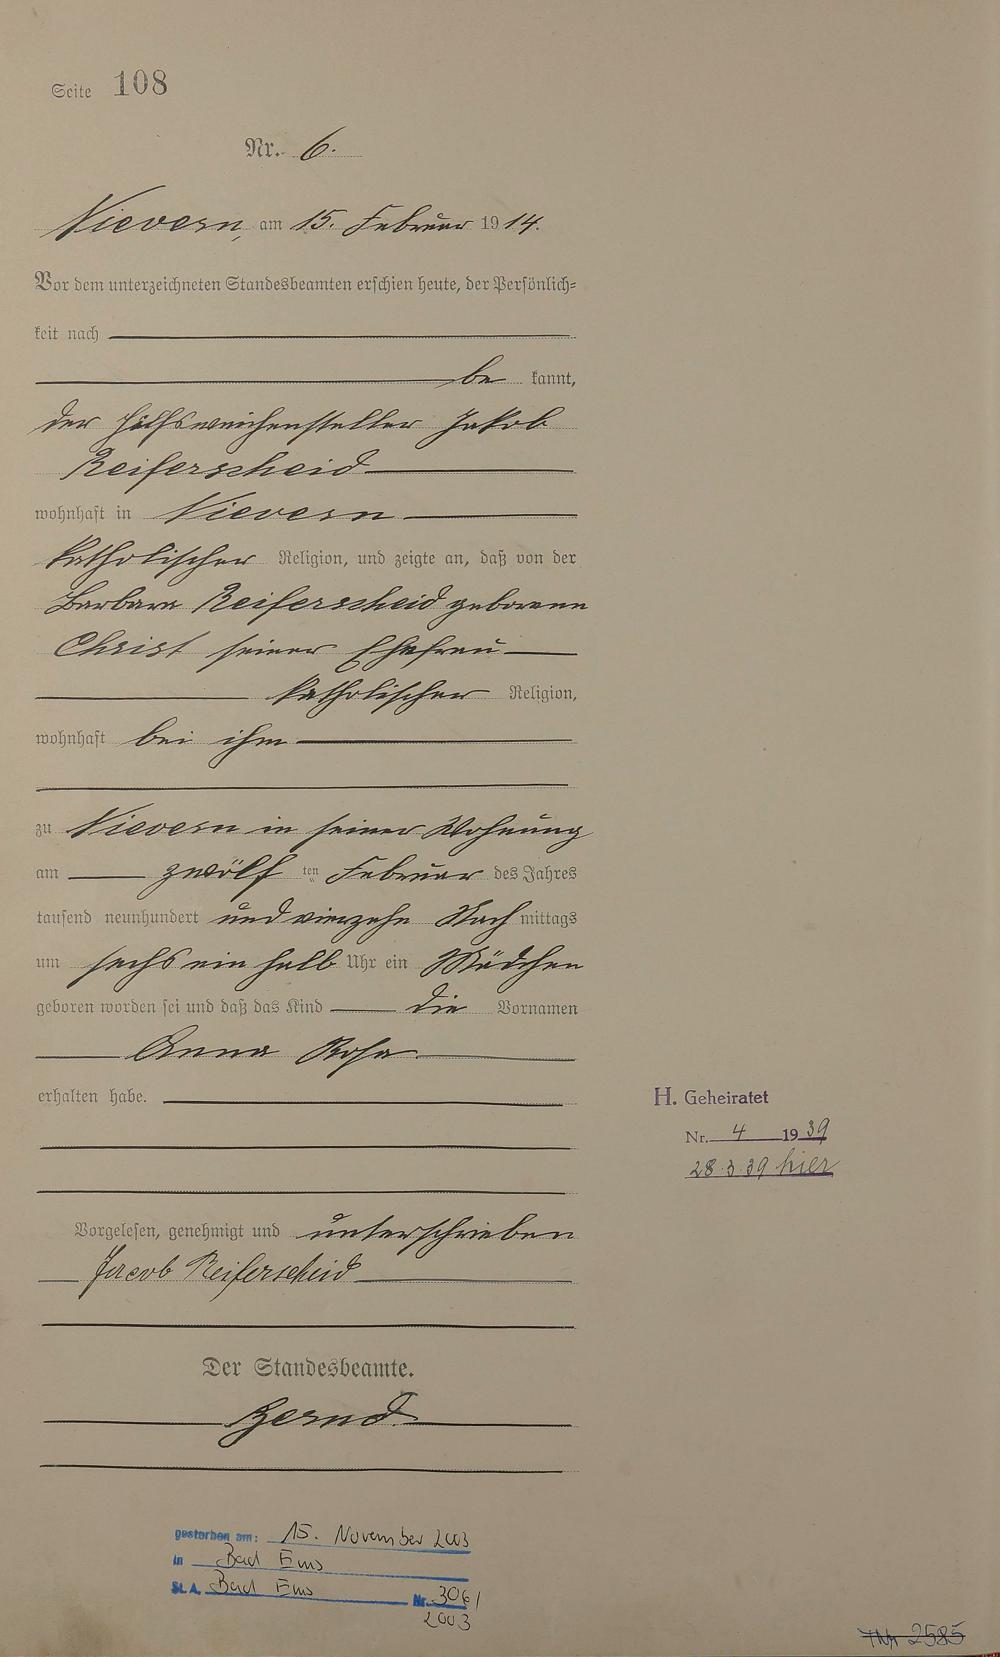 Seite 108
Nr. 6.
Nievern, am 15. Februar 1914.
Vor dem unterzeichneten Standesbeamten erschien heute, der Persönlich-
keit nach
be kannt,
der Hilfsweichensteller Jakob
Reiferscheid
wohnhaft in Nievern
katholischer Religion, und zeigte an, daß von der
Barbara Reiferscheid geborenen
Christ seiner Ehefrau
katholischer Religion,
wohnhaft bei ihm
zu Nievern in seiner Wohnung
am zwölf ten Februar des Jahres
tausend neunhundert und vierzehn Nach mittags
um sechs ein halb Uhr ein Mädchen
geboren worden sei und daß das Kind die Vornamen
Anna Rosa
erhalten habe.
H. Geheiratet
Nr. 4 1939
28.3.39 hier
Vorgelesen, genehmigt und unterschrieben
Jacob Reiferscheid
Der Standesbeamte.
gestorben am: 15. November 2003
in Bad Ems
St. A. Bad Ems Nr. 306/
2003
2585